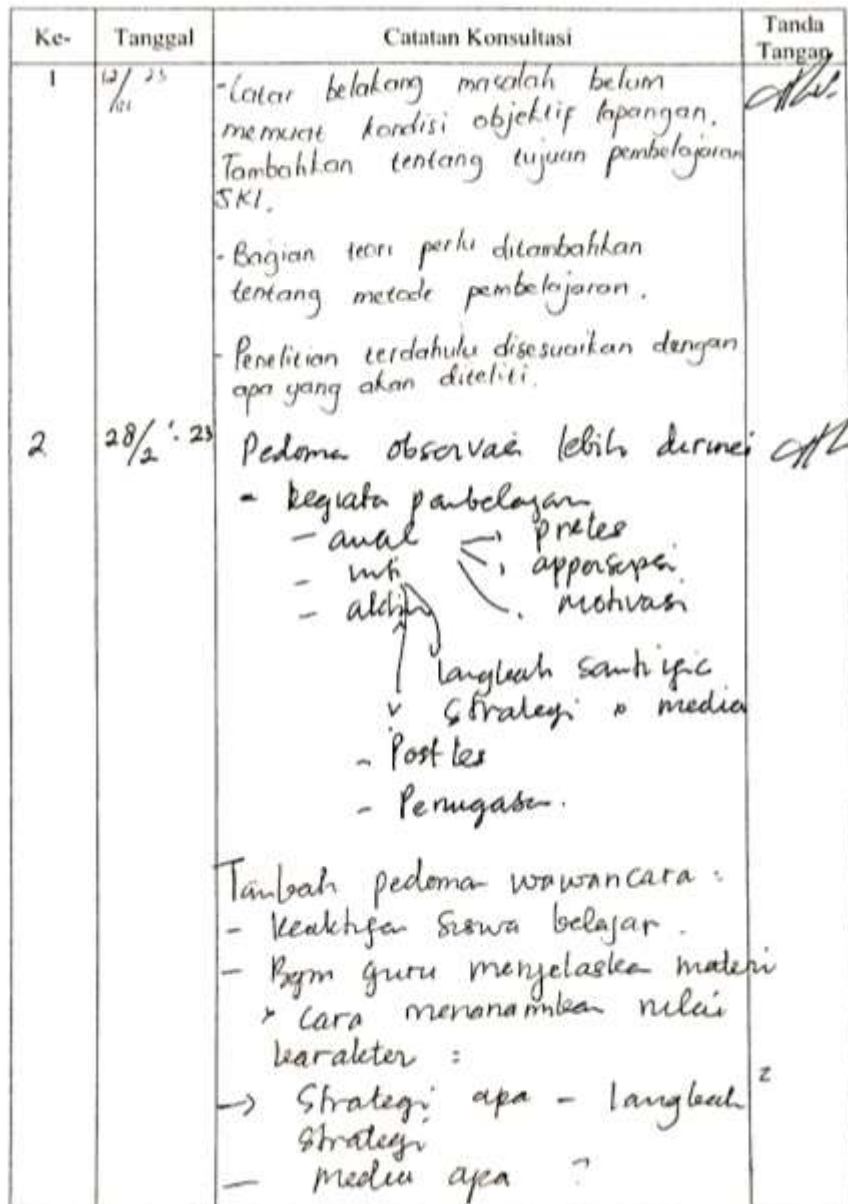 Ke- Tanggal Catatan Konsultasi Tanda Tangan
1 12/01 23 - Latar belakang masalah belum
memuat kondisi objektif lapangan.
Tambahkan tentang tujuan pembelajaran
SKI.
- Bagian teori perlu ditambahkan
tentang metode pembelajaran.
- Penelitian terdahulu disesuaikan dengan
apa yang akan diteliti.
2 28/2 '. 23 Pedoma observasi lebih dirinci
- kegiata pembelajaran
- awal → pretes
- inti , appersepsi
- akhir . motivasi
langkah saintific
strategi & media
- Post tes
- Penugasan.
Tambah pedoman wawancara :
- Keaktifan siswa belajar.
- Bgm guru menjelaskan materi
> cara menanamkan nilai
karakter :
→ Strategi apa - langkah 2
strategi
- media apa ?